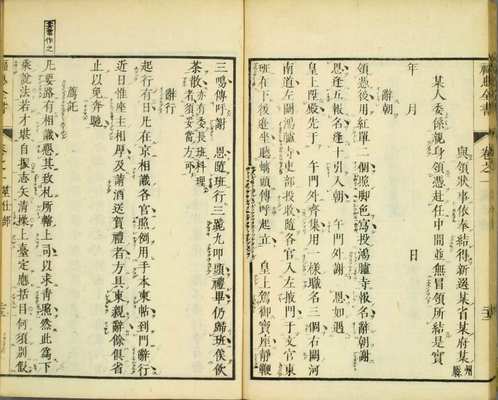 與領狀事依奉結得新選某省某府某州縣
某人委係親身領憑赴任中間並無冒領所結是實
年 月 日
辭朝
領憑後用紅單二個照脚色寫投鴻臚寺報名辭朝謝
恩逢五報名逢十引入朝 午門外謝 恩如遇
皇上陞殿先于 午門外齊集用一樣職名三個右闕河
南道左闕鴻臚寺吏部投收隨各官入左掖門于文官東
班在下後邊坐聽螭頭傳呼起立 皇上駕御寶座靜鞭
三鳴傳呼謝 恩隨班行三跪九叩頭禮畢仍歸班俟飲
茶散亦有委長班料理者須妥當方可
辭行
起行有日凡在京相識各官照例用手本柬帖到門辭行
近日惟座主相厚及請酒送贐禮者方具柬親辭餘俱省
止以免奔馳
薦託
凡要路有相識懇其致札所轄上司以求青照然此為下
乘說法若才堪自振志矢清操上臺定應括目何須剡版
福惠全書
卷之一